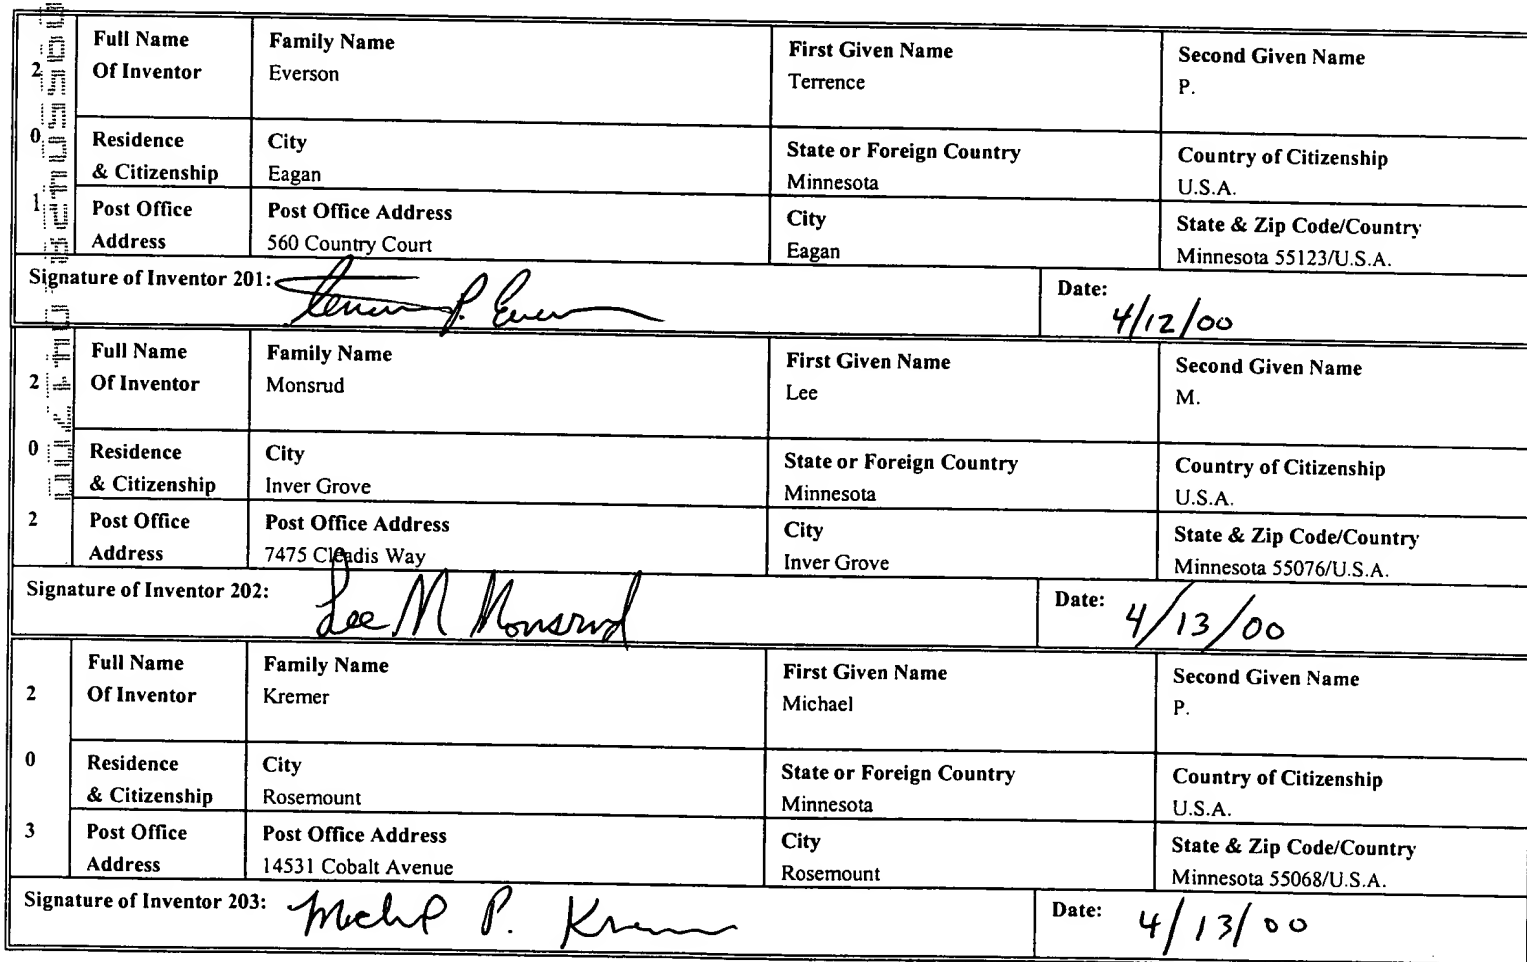 Full Name Of Inventor Family Name Everson First Given Name Terrence Second Given Name P.
2 0 1
Residence & Citizenship City Eagan State or Foreign Country Minnesota Country of Citizenship U.S.A.
Post Office Address Post Office Address 560 Country Court City Eagan State & Zip Code/Country Minnesota 55123/U.S.A.
Signature of Inventor 201: P. Date: 4/12/00
Full Name Of Inventor Family Name Monsrud First Given Name Lee Second Given Name M.
2 0 2
Residence & Citizenship City Inver Grove State or Foreign Country Minnesota Country of Citizenship U.S.A.
Post Office Address Post Office Address 7475 Cleadis Way City Inver Grove State & Zip Code/Country Minnesota 55076/U.S.A.
Signature of Inventor 202: Lee M Monsrud Date: 4/13/00
Full Name Of Inventor Family Name Kremer First Given Name Michael Second Given Name P.
2 0 3
Residence & Citizenship City Rosemount State or Foreign Country Minnesota Country of Citizenship U.S.A.
Post Office Address Post Office Address 14531 Cobalt Avenue City Rosemount State & Zip Code/Country Minnesota 55068/U.S.A.
Signature of Inventor 203: P. Date: 4/13/00